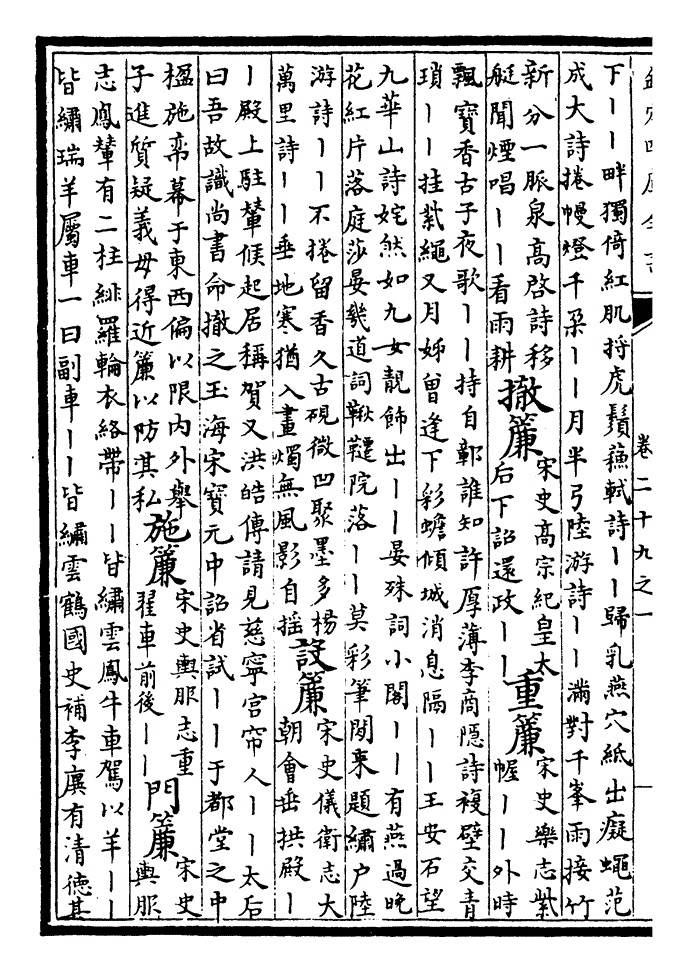 欽定四庫全書
卷二十九之一
下丨丨畔獨倚紅肌捋虎鬚蘇軾詩丨丨歸乳燕穴紙出癡蠅范
成大詩捲幔燈千朶丨丨月半弓陸游詩丨丨滿對千峯雨接竹
新分一脈泉高啓詩移
艇聞煙唱丨丨看雨耕
撤簾
宋史高宗紀皇太
后下詔還政丨丨
重簾
宋史樂志紫
幄丨丨外時
飄寶香古子夜歌丨丨持自鄣誰知許厚薄李商隱詩複壁交青
瑣丨丨挂紫繩又月姊曾逢下彩蟾傾城消息隔丨丨王安石望
九華山詩姹然如九女靚飾出丨丨晏殊詞小閣丨丨有燕過晚
花紅片落庭莎晏幾道詞鞦韆院落丨丨莫彩筆閒來題繡户陸
游詩丨丨不捲留香久古硯微凹聚墨多楊
萬里詩丨丨垂地寒猶入畫燭無風影自摇
設簾
宋史儀衛志大
朝會垂拱殿丨
丨殿上駐輦候起居稱賀又洪皓傳請見慈寧宫帘人丨丨太后
曰吾故識尚書命撤之玉海宋寶元中詔省試丨丨于都堂之中
楹施帟幕于東西偏以限内外舉
子進質疑義毋得近簾以防其私
施簾
宋史輿服志重
翟車前後丨丨
門簾
宋史
輿服
志鳳輦有二柱緋羅輪衣絡帶丨丨皆繡雲鳳牛車駕以羊丨丨
皆繡瑞羊屬車一曰副車丨丨皆繡雲鶴國史補李廙有清德其